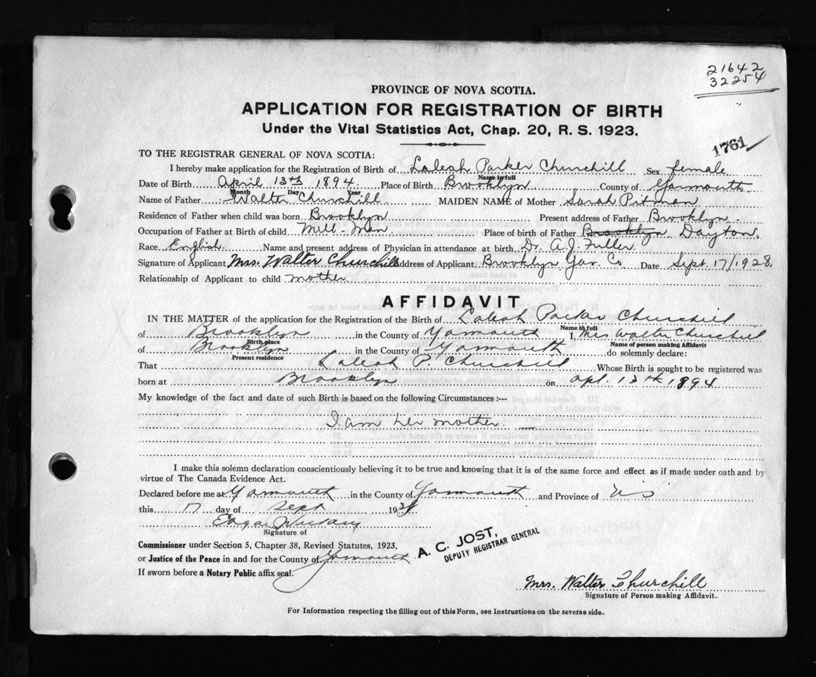 21642
32254
PROVINCE OF NOVA SCOTIA.
APPLICATION FOR REGISTRATION OF BIRTH
Under the Vital Statistics Act, Chap. 20, R. S. 1923.
1761
TO THE REGISTRAR GENERAL OF NOVA SCOTIA:
I hereby make application for the Registration of Birth of Laleah Parker Churchill Sex female
Name in full
Date of Birth April 13th 1894 Place of Birth Brooklyn County of Yarmouth
Month Day Year
Name of Father Walter Churchill MAIDEN NAME of Mother Sarah Pitman
Residence of Father when child was born Brooklyn Present address of Father Brooklyn.
Occupation of Father at Birth of child Mill-Man Place of birth of Father Brooklyn Dayton
Race English Name and present address of Physician in attendance at birth Dr. A.J. Fuller
Signature of Applicant Mrs. Walter Churchill Address of Applicant Brooklyn Yar. Co Date Sept. 17/1928.
Relationship of Applicant to child mother
AFFIDAVIT
IN THE MATTER of the application for the Registration of the Birth of Laleah Parker Churchill
Name in full
of Brooklyn in the County of Yarmouth I, Mrs Walter Churchill
Birth place Name of person making Affidavit
of Brooklyn in the County of Yarmouth do solemnly declare:
Present residence
That Laleah P. Churchill Whose Birth is sought to be registered was
born at Brooklyn on Apl. 13th 1894
My knowledge of the fact and date of such Birth is based on the following Circumstances :—
I am her mother. —
I make this solemn declaration conscientiously believing it to be true and knowing that it is of the same force and effect as if made under oath and by
virtue of The Canada Evidence Act.
Declared before me at Yarmouth in the County of Yarmouth and Province of NS
this 17 day of Sept 1928
Signature of
Commissioner under Section 5, Chapter 38, Revised Statutes, 1923,
or Justice of the Peace in and for the County of Yarmouth
If sworn before a Notary Public affix seal.
A. C. JOST,
DEPUTY REGISTRAR GENERAL
Mrs. Walter Churchill
Signature of Person making Affidavit.
For Information respecting the filling out of this Form, see Instructions on the reverse side.